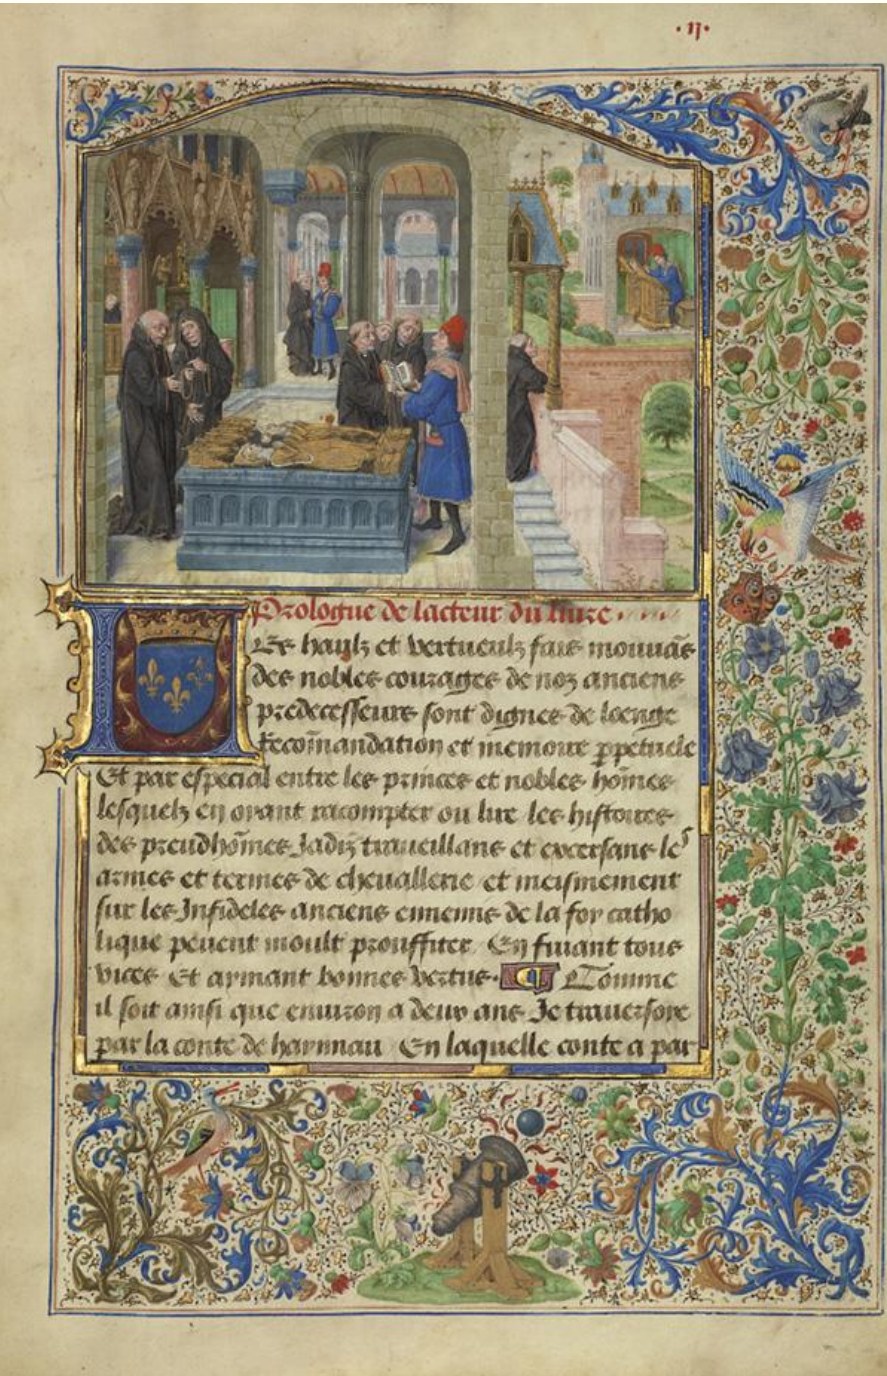 ·ij·
Prologue de lacteur du liure
Les haulz et vertueulz fais mouuãs
des nobles courages de noz anciens
predecesseurs sont dignes de loenge
Recõmandation et memoire ꝑpetuele
Et par especial entre les princes et nobles hõmes
lesquelz en oyant racompter ou lire les histoires
des preudhõmes Jadiz traueillans et excersans les
armes et termes de cheuallerie et meismement
sur les Infideles anciens ennemis de la foy catho
lique peuent moult prouffiter En fuiant tous
vices Et aymant bonnes vertus. Comme
il soit ainsi que enuiron a deux ans Je trauersoye
par la conte de haynnau En laquelle conte a par